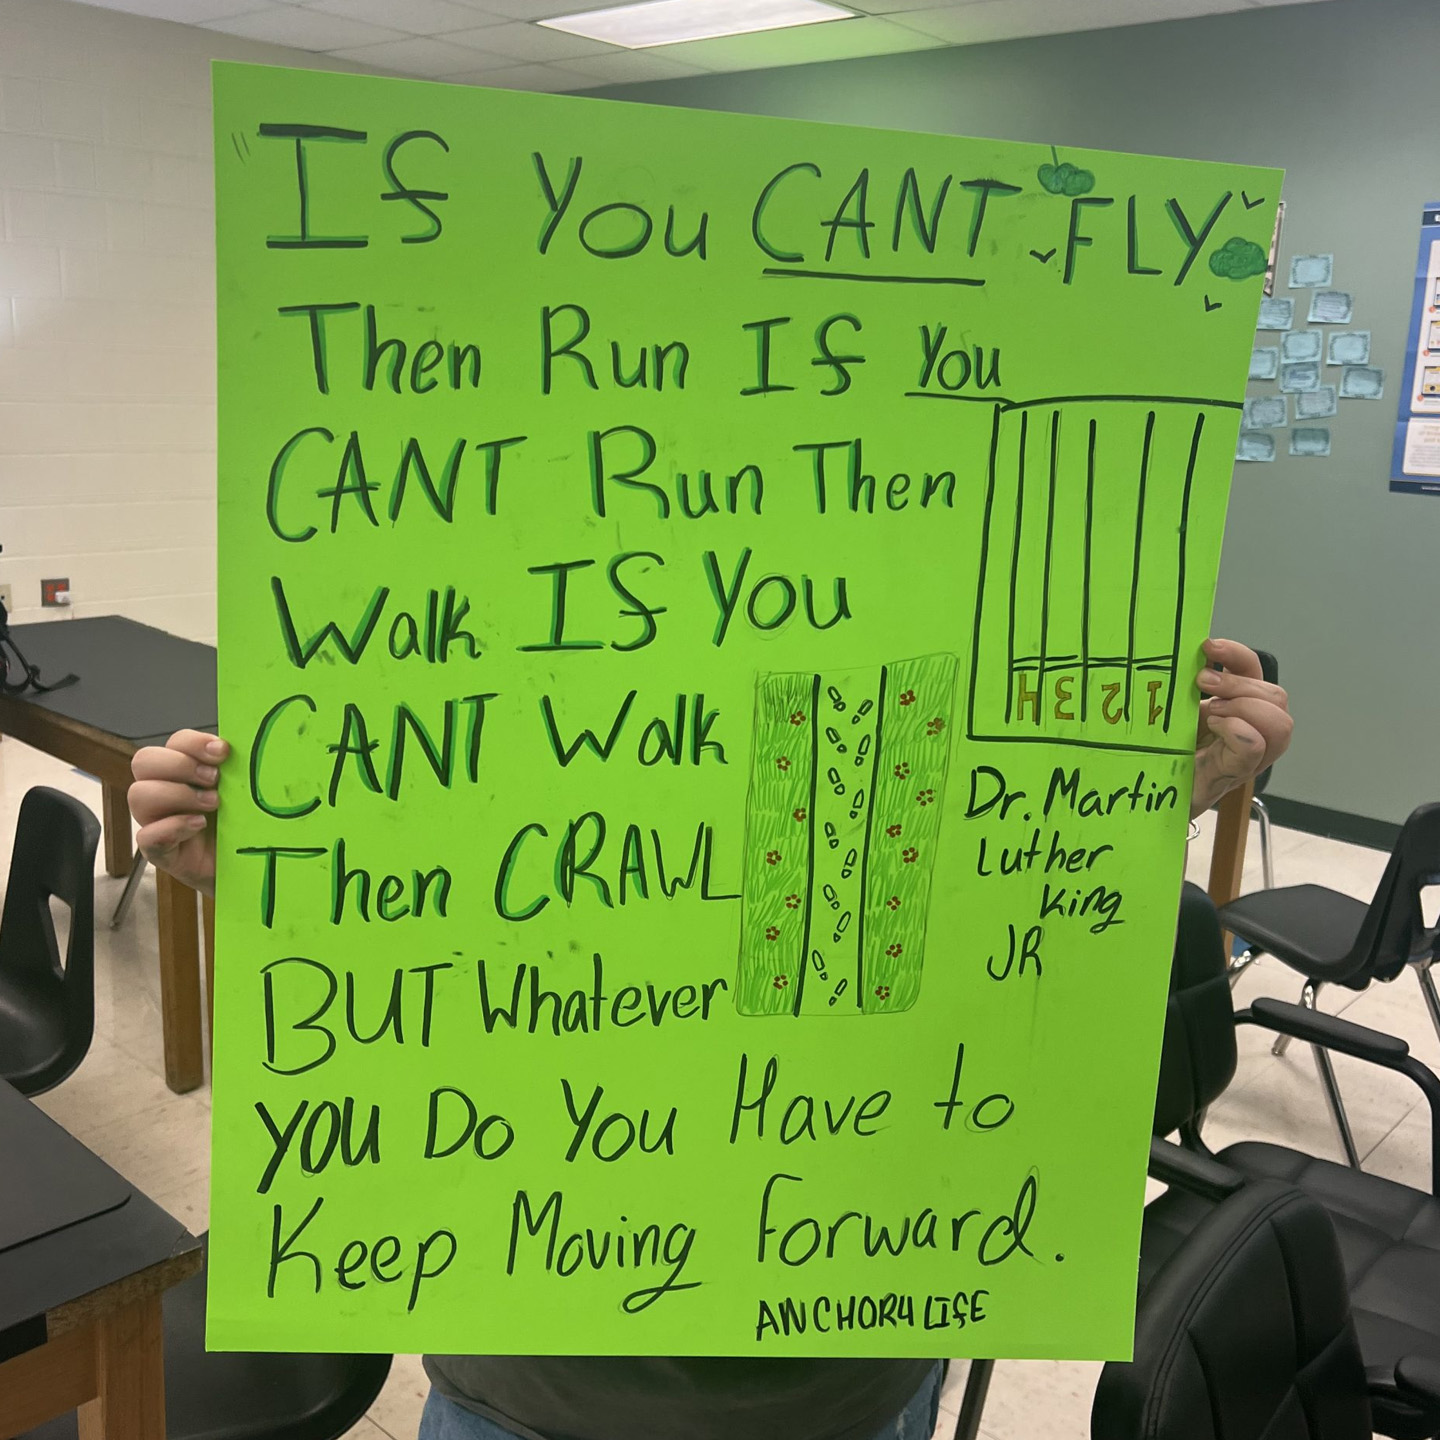 "If You CANT FLY
Then Run If You
CANT Run Then
Walk If You
CANT Walk
Then CRAWL
BUT Whatever
you Do You Have to
Keep Moving Forward.
4 3 2 1
Dr. Martin
Luther
King
JR
ANCHOR4LIFE